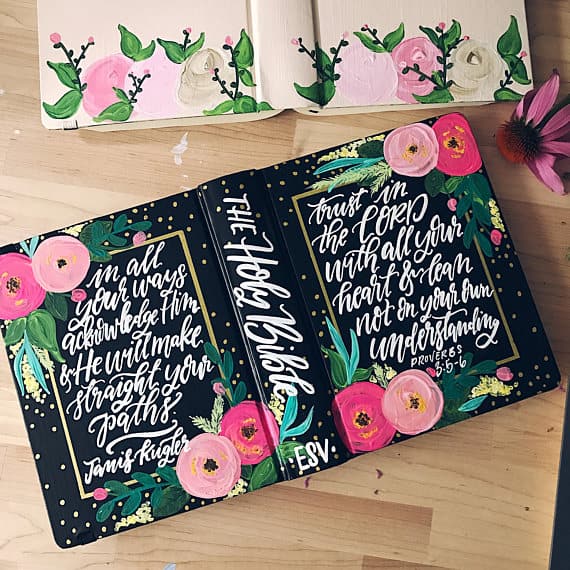 in all
your ways
acknowledge Him
& He will make
straight your
paths.
Jamis Kugler
THE Holy Bible
ESV
trust in
the LORD
with all your
heart & lean
not on your own
understanding
PROVERBS
3:5-6